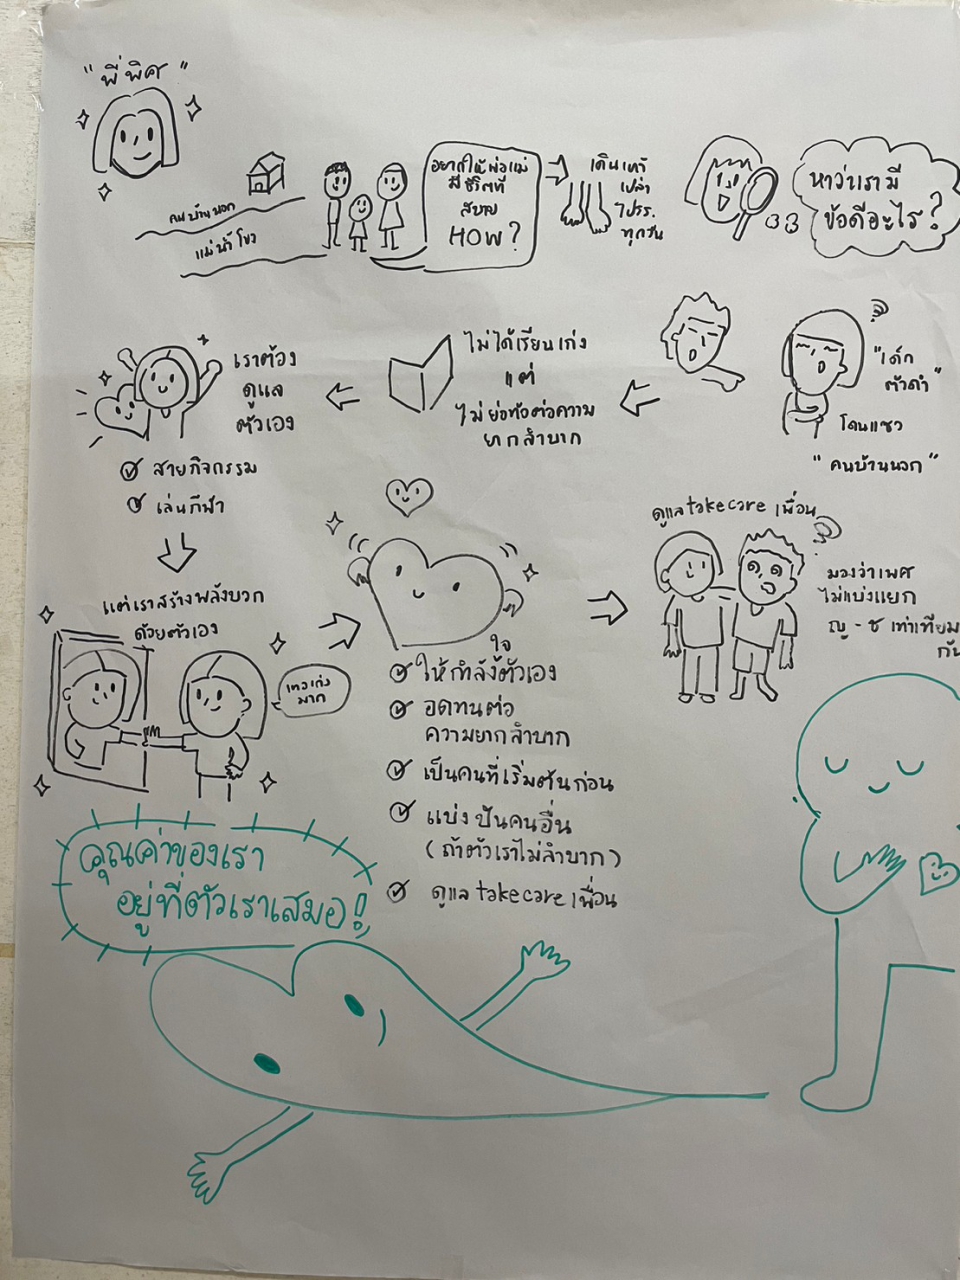 "พี่พิศ"
คนบ้านนอก
แม่น้ำโขง
อยากให้พ่อแม่
มีชีวิตที่
สบาย
HOW?
เดินเท้า
เปล่า
ไปรร.
ทุกวัน
หาว่าเรามี
ข้อดีอะไร?
"เด็ก
ตัวดำ"
โดนแซว
"คนบ้านนอก"
ไม่ได้เรียนเก่ง
แต่
ไม่ย่อท้อต่อความ
ยากลำบาก
เราต้อง
ดูแล
ตัวเอง
สายกิจกรรม
เล่นกีฬา
แต่เราสร้างพลังบวก
ด้วยตัวเอง
เธอเก่ง
มาก
ให้กำลังใจตัวเอง
อดทนต่อ
ความยากลำบาก
เป็นคนที่เริ่มต้นก่อน
แบ่งปันคนอื่น
(ถ้าตัวเราไม่ลำบาก)
ดูแล takecare เพื่อน
ดูแล takecare เพื่อน
มองว่าเพศ
ไม่แบ่งแยก
ญ - ช เท่าเทียม
กัน
คุณค่าของเรา
อยู่ที่ตัวเราเสมอ!